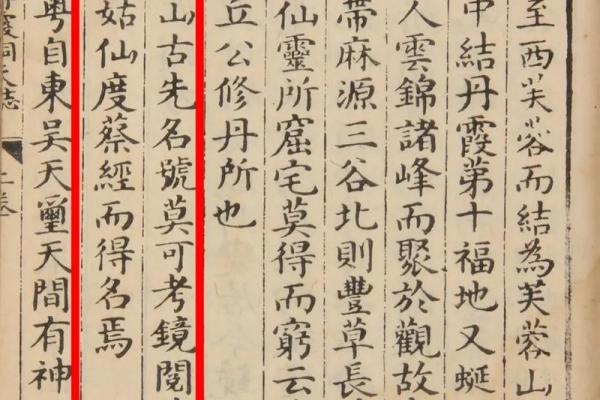 至西芙蓉而結為芙蓉山
中結丹霞第十福地又蜒
人雲錦諸峰而聚於觀故
帶麻源三谷北則豐草長
仙靈所窟宅莫得而窮云
丘公修丹所也
山古先名號莫可考鏡閱
姑仙度蔡經而得名焉
粵自東吳天璽天間有神
霞洞天志 卷